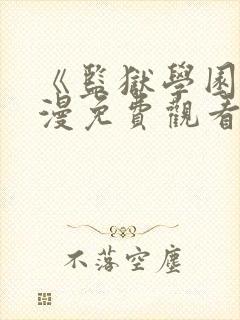 《監獄學園
漫免費觀看
不落空塵